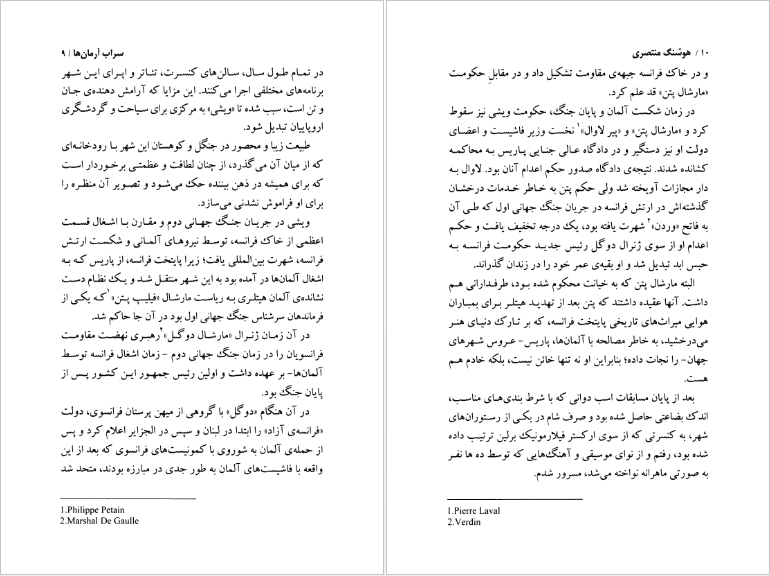 سراب آرمان‌ها / ۹
در تمام طول سال، سالن‌های کنسرت، تئاتر و اپرای این شهر
برنامه‌های مختلفی اجرا می‌کنند. این مزایا که آرامش دهنده‌ی جان
و تن است، سبب شده تا «ویشی» به مرکزی برای سیاحت و گردشگری
اروپاییان تبدیل شود.
طبیعت زیبا و محصور در جنگل و کوهستان این شهر با رودخانه‌ای
که از میان آن می‌گذرد، از چنان لطافت و عظمتی برخوردار است
که برای همیشه در ذهن بیننده حک می‌شود و تصویر آن منظره را
برای او فراموش نشدنی می‌سازد.
ویشی در جریان جنگ جهانی دوم و مقارن با اشغال قسمت
اعظمی از خاک فرانسه، توسط نیروهای آلمانی و شکست ارتش
فرانسه، شهرت بین‌المللی یافت؛ زیرا پایتخت فرانسه، از پاریس که به
اشغال آلمان‌ها در آمده بود به این شهر منتقل شد و یک نظام دست
نشانده‌ی آلمان هیتلری به ریاست مارشال «فیلیپ پتن»۱ که یکی از
فرماندهان سرشناس جنگ جهانی اول بود در آن جا حاکم شد.
در آن زمان ژنرال «مارشال دوگل»۲ رهبری نهضت مقاومت
فرانسویان را در زمان جنگ جهانی دوم - زمان اشغال فرانسه توسط
آلمان‌ها- بر عهده داشت و اولین رئیس جمهور این کشور پس از
پایان جنگ بود.
در آن هنگام «دوگل» با گروهی از میهن پرستان فرانسوی، دولت
«فرانسه‌ی آزاد» را ابتدا در لبنان و سپس در الجزایر اعلام کرد و پس
از حمله‌ی آلمان به شوروی با کمونیست‌های فرانسوی که بعد از این
واقعه با فاشیست‌های آلمان به طور جدی در مبارزه بودند، متحد شد
1.Philippe Petain
2.Marshal De Gaulle
۱۰ / هوشنگ منتصری
و در خاک فرانسه جبهه‌ی مقاومت تشکیل داد و در مقابل حکومت
«مارشال پتن» قد علم کرد.
در زمان شکست آلمان و پایان جنگ، حکومت ویشی نیز سقوط
کرد و «مارشال پتن» و «پیر لاوال»۱ نخست وزیر فاشیست و اعضای
دولت او نیز دستگیر و در دادگاه عالی جنایی پاریس به محاکمه
کشانده شدند. نتیجه‌ی دادگاه صدور حکم اعدام آنان بود. لاوال به
دار مجازات آویخته شد ولی حکم پتن به خاطر خدمات درخشان
گذشته‌اش در ارتش فرانسه در جریان جنگ جهانی اول که طی آن
به فاتح «وردن»۲ شهرت یافته بود، یک درجه تخفیف یافت و حکم
اعدام او از سوی ژنرال دوگل رئیس جدید حکومت فرانسه به
حبس ابد تبدیل شد و او بقیه‌ی عمر خود را در زندان گذراند.
البته مارشال پتن که به خیانت محکوم شده بود، طرفدارانی هم
داشت. آنها عقیده داشتند که پتن بعد از تهدید هیتلر برای بمباران
هوایی میراث‌های تاریخی پایتخت فرانسه، که بر تارک دنیای هنر
می‌درخشید، به خاطر مصالحه با آلمان‌ها، پاریس- عروس شهرهای
جهان- را نجات داده؛ بنابراین او نه تنها خائن نیست، بلکه خادم هم
هست.
بعد از پایان مسابقات اسب دوانی که با شرط بندی‌های مناسب،
اندک بضاعتی حاصل شده بود و صرف شام در یکی از رستوران‌های
شهر، به کنسرتی که از سوی ارکستر فیلارمونیک برلین ترتیب داده
شده بود، رفتم و از نوای موسیقی و آهنگ‌هایی که توسط ده ها نفر
به صورتی ماهرانه نواخته می‌شد، مسرور شدم.
1.Pierre Laval
2.Verdin